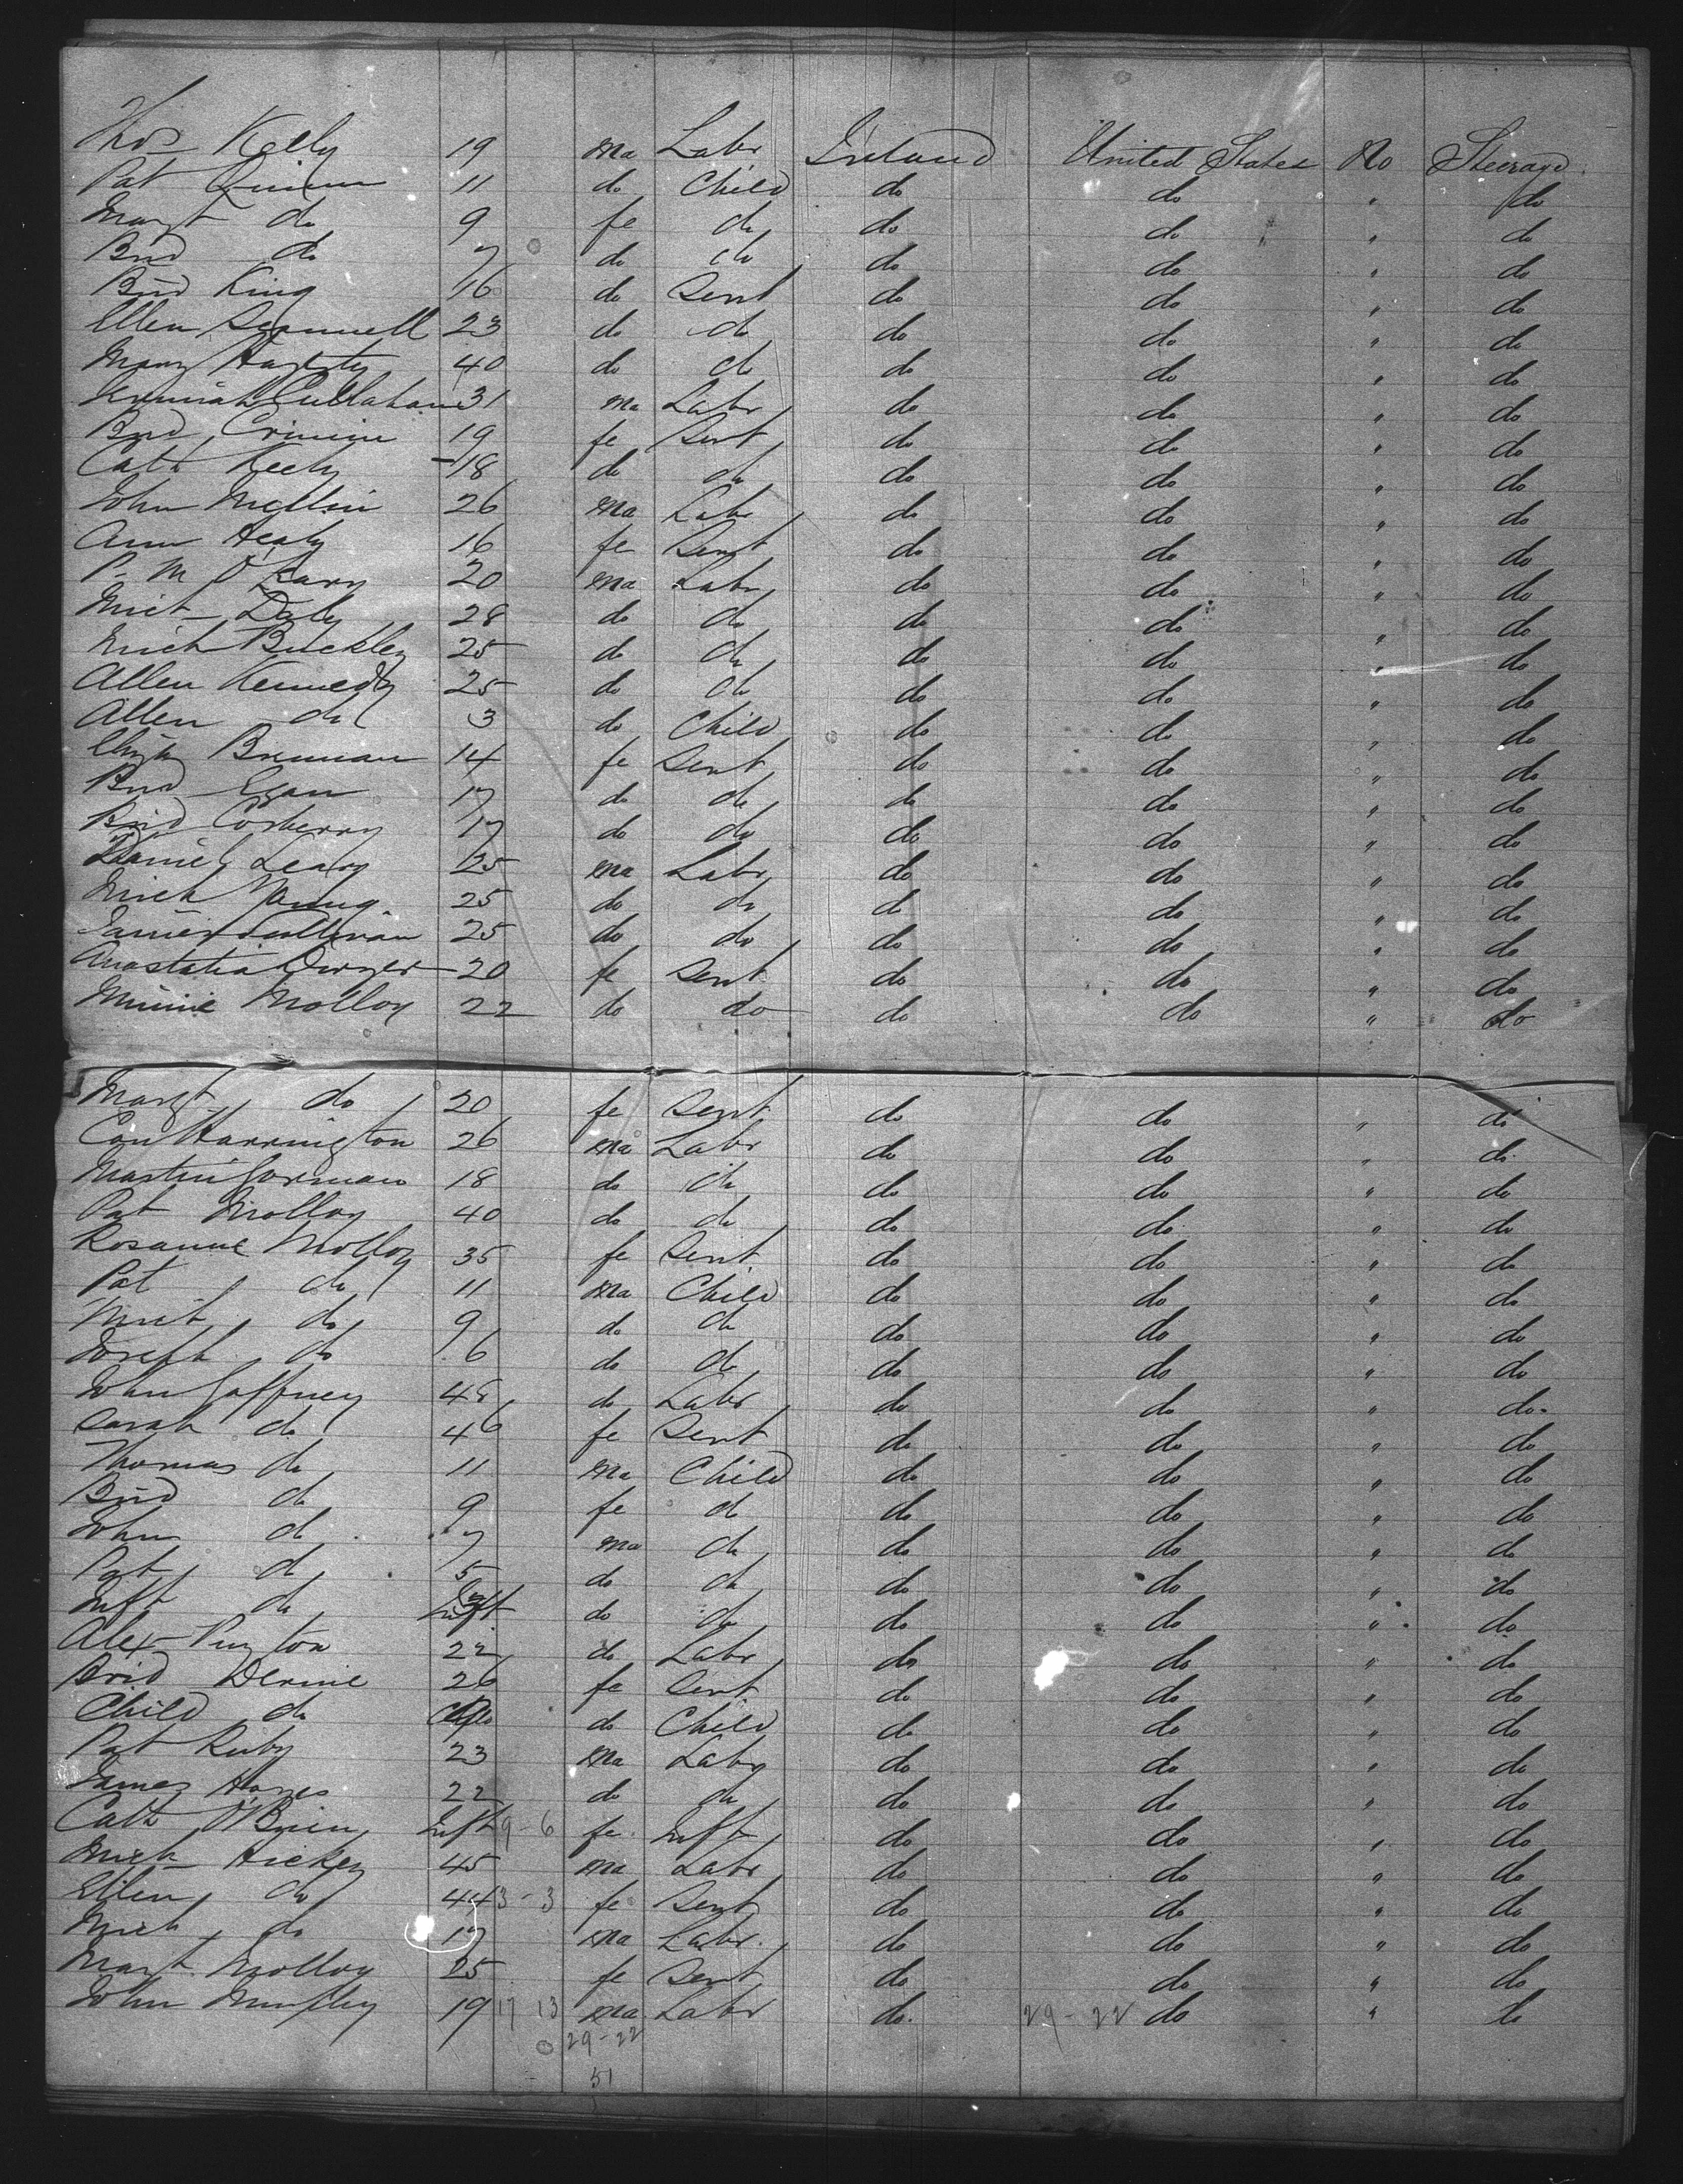 Thos Kelly 19 ma Labr Ireland United States No Steerage
Pat Quinn 11 do Child do do " do
Margt do 9 fe do do do " do
Brid do 7 do do do do " do
Brid King 16 do Sert do do " do
Ellen 23 do do do do " do
Mary Hagerty 40 do do do do " do
Callahan 31 ma Labr do do " do
Brid 19 fe Sert do do " do
Cath Keely 18 do do do do " do
John 26 ma Labr do do " do
Ann Healy 16 fe Sert do do " do
P. M O'Leary 20 ma Labr do do " do
Mich Daly 28 do do do do " do
Mich Buckley 25 do do do do " do
Allen Kennedy 25 do do do do " do
Allen do 3 do Child do do " do
Brennan 14 fe Sert do do " do
Brid Egan 17 do do do do " do
Brid Corberry 17 do do do do " do
Daniel Leary 25 ma Labr do do " do
Mich Young 25 do do do do " do
James Sullivan 25 do do do do " do
Anastatia Dwyer 20 fe Sert do do " do
Minnie Molloy 22 do do do do " do
Margt do 20 fe Sert do do " do
Con Harrington 26 ma Labr do do " do
Martin Gorman 18 do do do do " do
Pat Molloy 40 do do do do " do
Rosanne Molloy 35 fe Sert do do " do
Pat do 11 ma Child do do " do
Mich do 9 do do do do " do
Joseph do 6 do do do do " do
John Gaffney 48 do Labr do do " do
Sarah do 46 fe Sert do do " do
Thomas do 11 ma Child do do " do
Brid do 9 fe do do do " do
John do 7 ma do do do " do
Pat do 5 do do do do " do
Inft do Inft do do do do " do
Alex Purton 22 do Labr do do " do
Brid Dernie 26 fe Sert do do " do
Child do do Child do do " do
Pat Ruby 23 ma Labr do do " do
James Hayes 22 do do do do " do
Cath O'Brien Inft 9-6 fe Inft do do " do
Mich Hickey 45 ma Labr do do " do
Ellen do 44 3-3 fe Sert do do " do
Mich do 17 ma Labr do do " do
Margt Molloy 25 fe Sert do do " do
John Murphy 19 17 13 ma Labr do 29-22 do " do
0 29-22
51